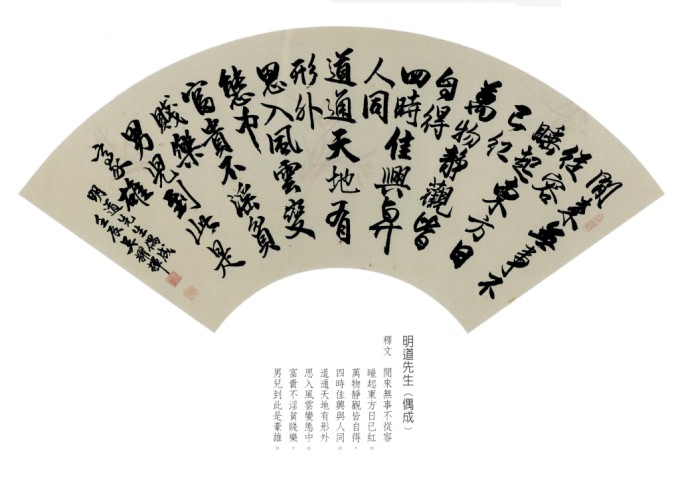 閒來無事不
從容
睡起東方日
已紅
萬物靜觀皆
自得
四時佳興與
人同
道通天地有
形外
思入風雲變
態中
富貴不淫貧
賤樂
男兒到此是
豪雄
明道先生偶成
壬辰
明道先生（偶成）
釋文 閒來無事不從容
睡起東方日已紅。
萬物靜觀皆自得，
四時佳興與人同。
道通天地有形外
思入風雲變態中。
富貴不淫貧賤樂，
男兒到此是豪雄。